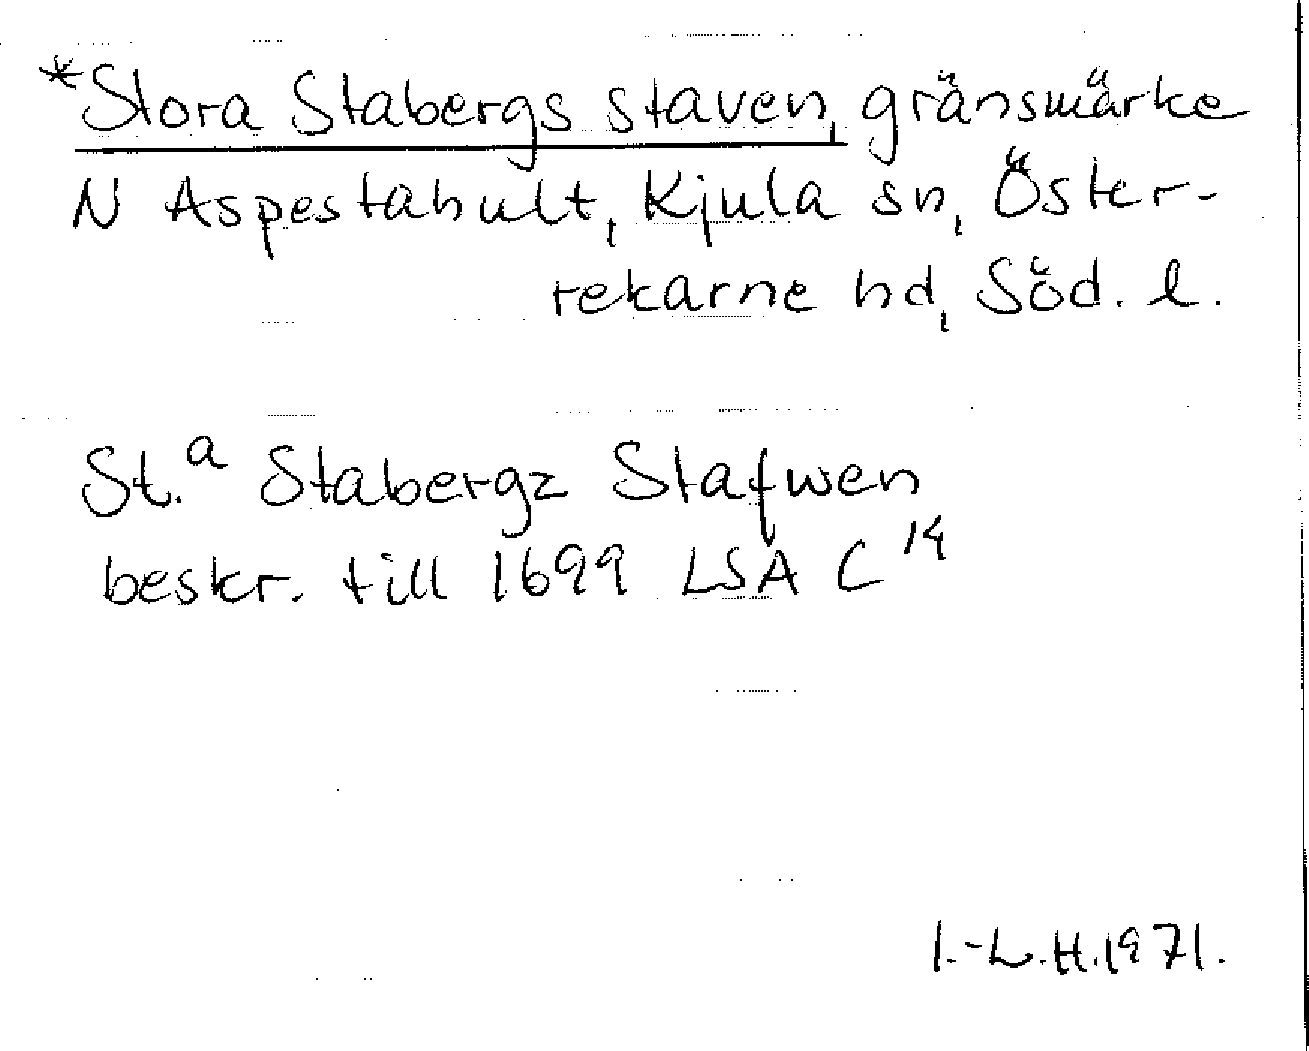 *Stora Stabergs staven, gränsmärke
N Aspestahult, Kjula sn, Öster-
rekarne hd, Söd. l.
St.ᵃ Stabergz Stafwen
beskr. till 1699 LSA C¹⁴
I.-L.H.1971.